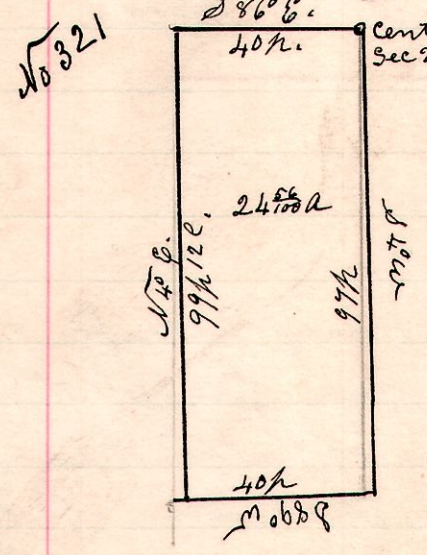 No 321
S 86° E.
40 p.
Cent
Sec 2
24 56/100 A
N 4° E.
99 p 12 l.
97 p
S 4° W
40 p
S 89° W